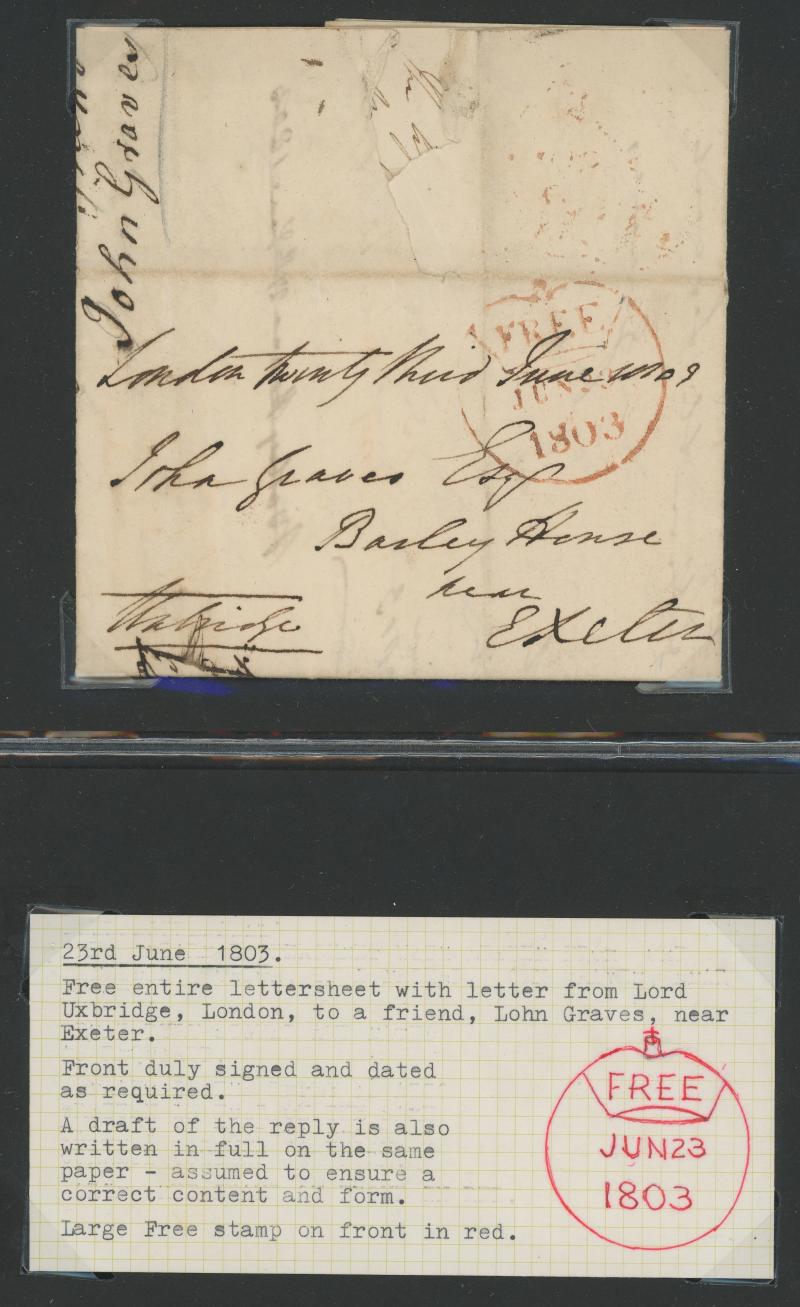 John Graves
FREE
JUN 23
1803
London twenty third June 1803
John Graves Esqr
Barley House
near
Exeter
Uxbridge
23rd June 1803.
Free entire lettersheet with letter from Lord
Uxbridge, London, to a friend, Lohn Graves, near
Exeter.
Front duly signed and dated
as required.
A draft of the reply is also
written in full on the same
paper - assumed to ensure a
correct content and form.
Large Free stamp on front in red.
FREE
JUN23
1803